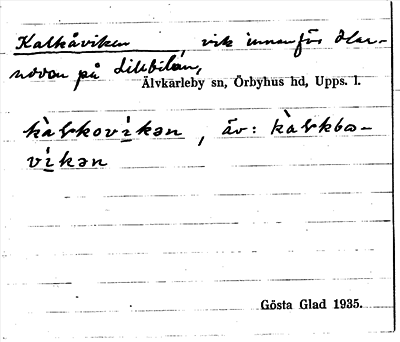 Kalkåviken vik innanför Olar-
udden på Lillbilan,
Älvkarleby sn, Örbyhus hd, Upps. l.
kàlkovìkən, äv: kàlkba-
vìkən
Gösta Glad 1935.